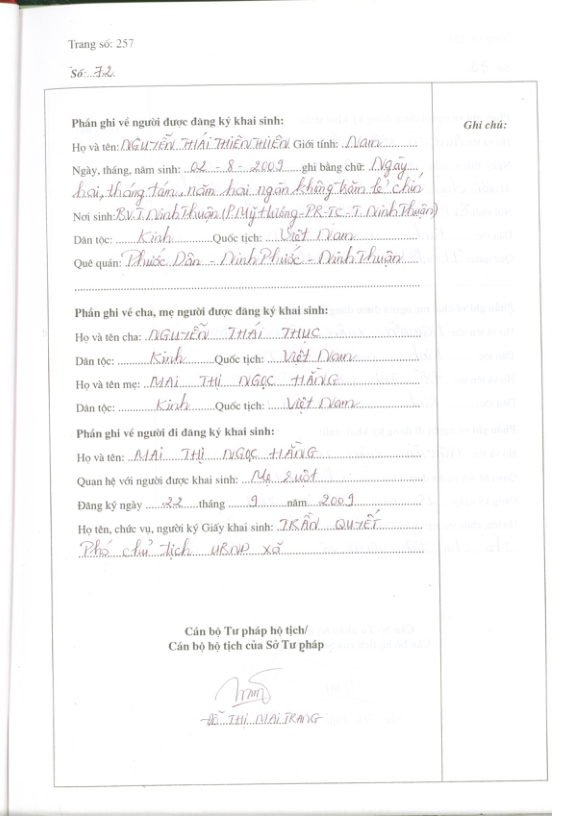 Trang số: 257
Số: 72
Phần ghi về người được đăng ký khai sinh:
Ghi chú:
Họ và tên: NGUYỄN THÁI THIÊN THIÊN Giới tính: Nam
Ngày, tháng, năm sinh: 02 - 8 - 2009 ghi bằng chữ: Ngày
hai, tháng tám, năm hai ngàn không trăm lẻ chín
Nơi sinh: BV.T. Ninh Thuận (P. Mỹ Hương - PR-TC - T. Ninh Thuận)
Dân tộc: Kinh Quốc tịch: Việt Nam
Quê quán: Phước Dân - Ninh Phước - Ninh Thuận
Phần ghi về cha, mẹ người được đăng ký khai sinh:
Họ và tên cha: NGUYỄN THÁI THỤC
Dân tộc: Kinh Quốc tịch: Việt Nam
Họ và tên mẹ: MAI THỊ NGỌC HẰNG
Dân tộc: Kinh Quốc tịch: Việt Nam
Phần ghi về người đi đăng ký khai sinh:
Họ và tên: MAI THỊ NGỌC HẰNG
Quan hệ với người được khai sinh: Mẹ ruột
Đăng ký ngày 22 tháng 9 năm 2009
Họ tên, chức vụ, người ký Giấy khai sinh: TRẦN QUYẾT
Phó chủ tịch UBND xã
Cán bộ Tư pháp hộ tịch/
Cán bộ hộ tịch của Sở Tư pháp
ĐỖ THỊ MAI TRANG